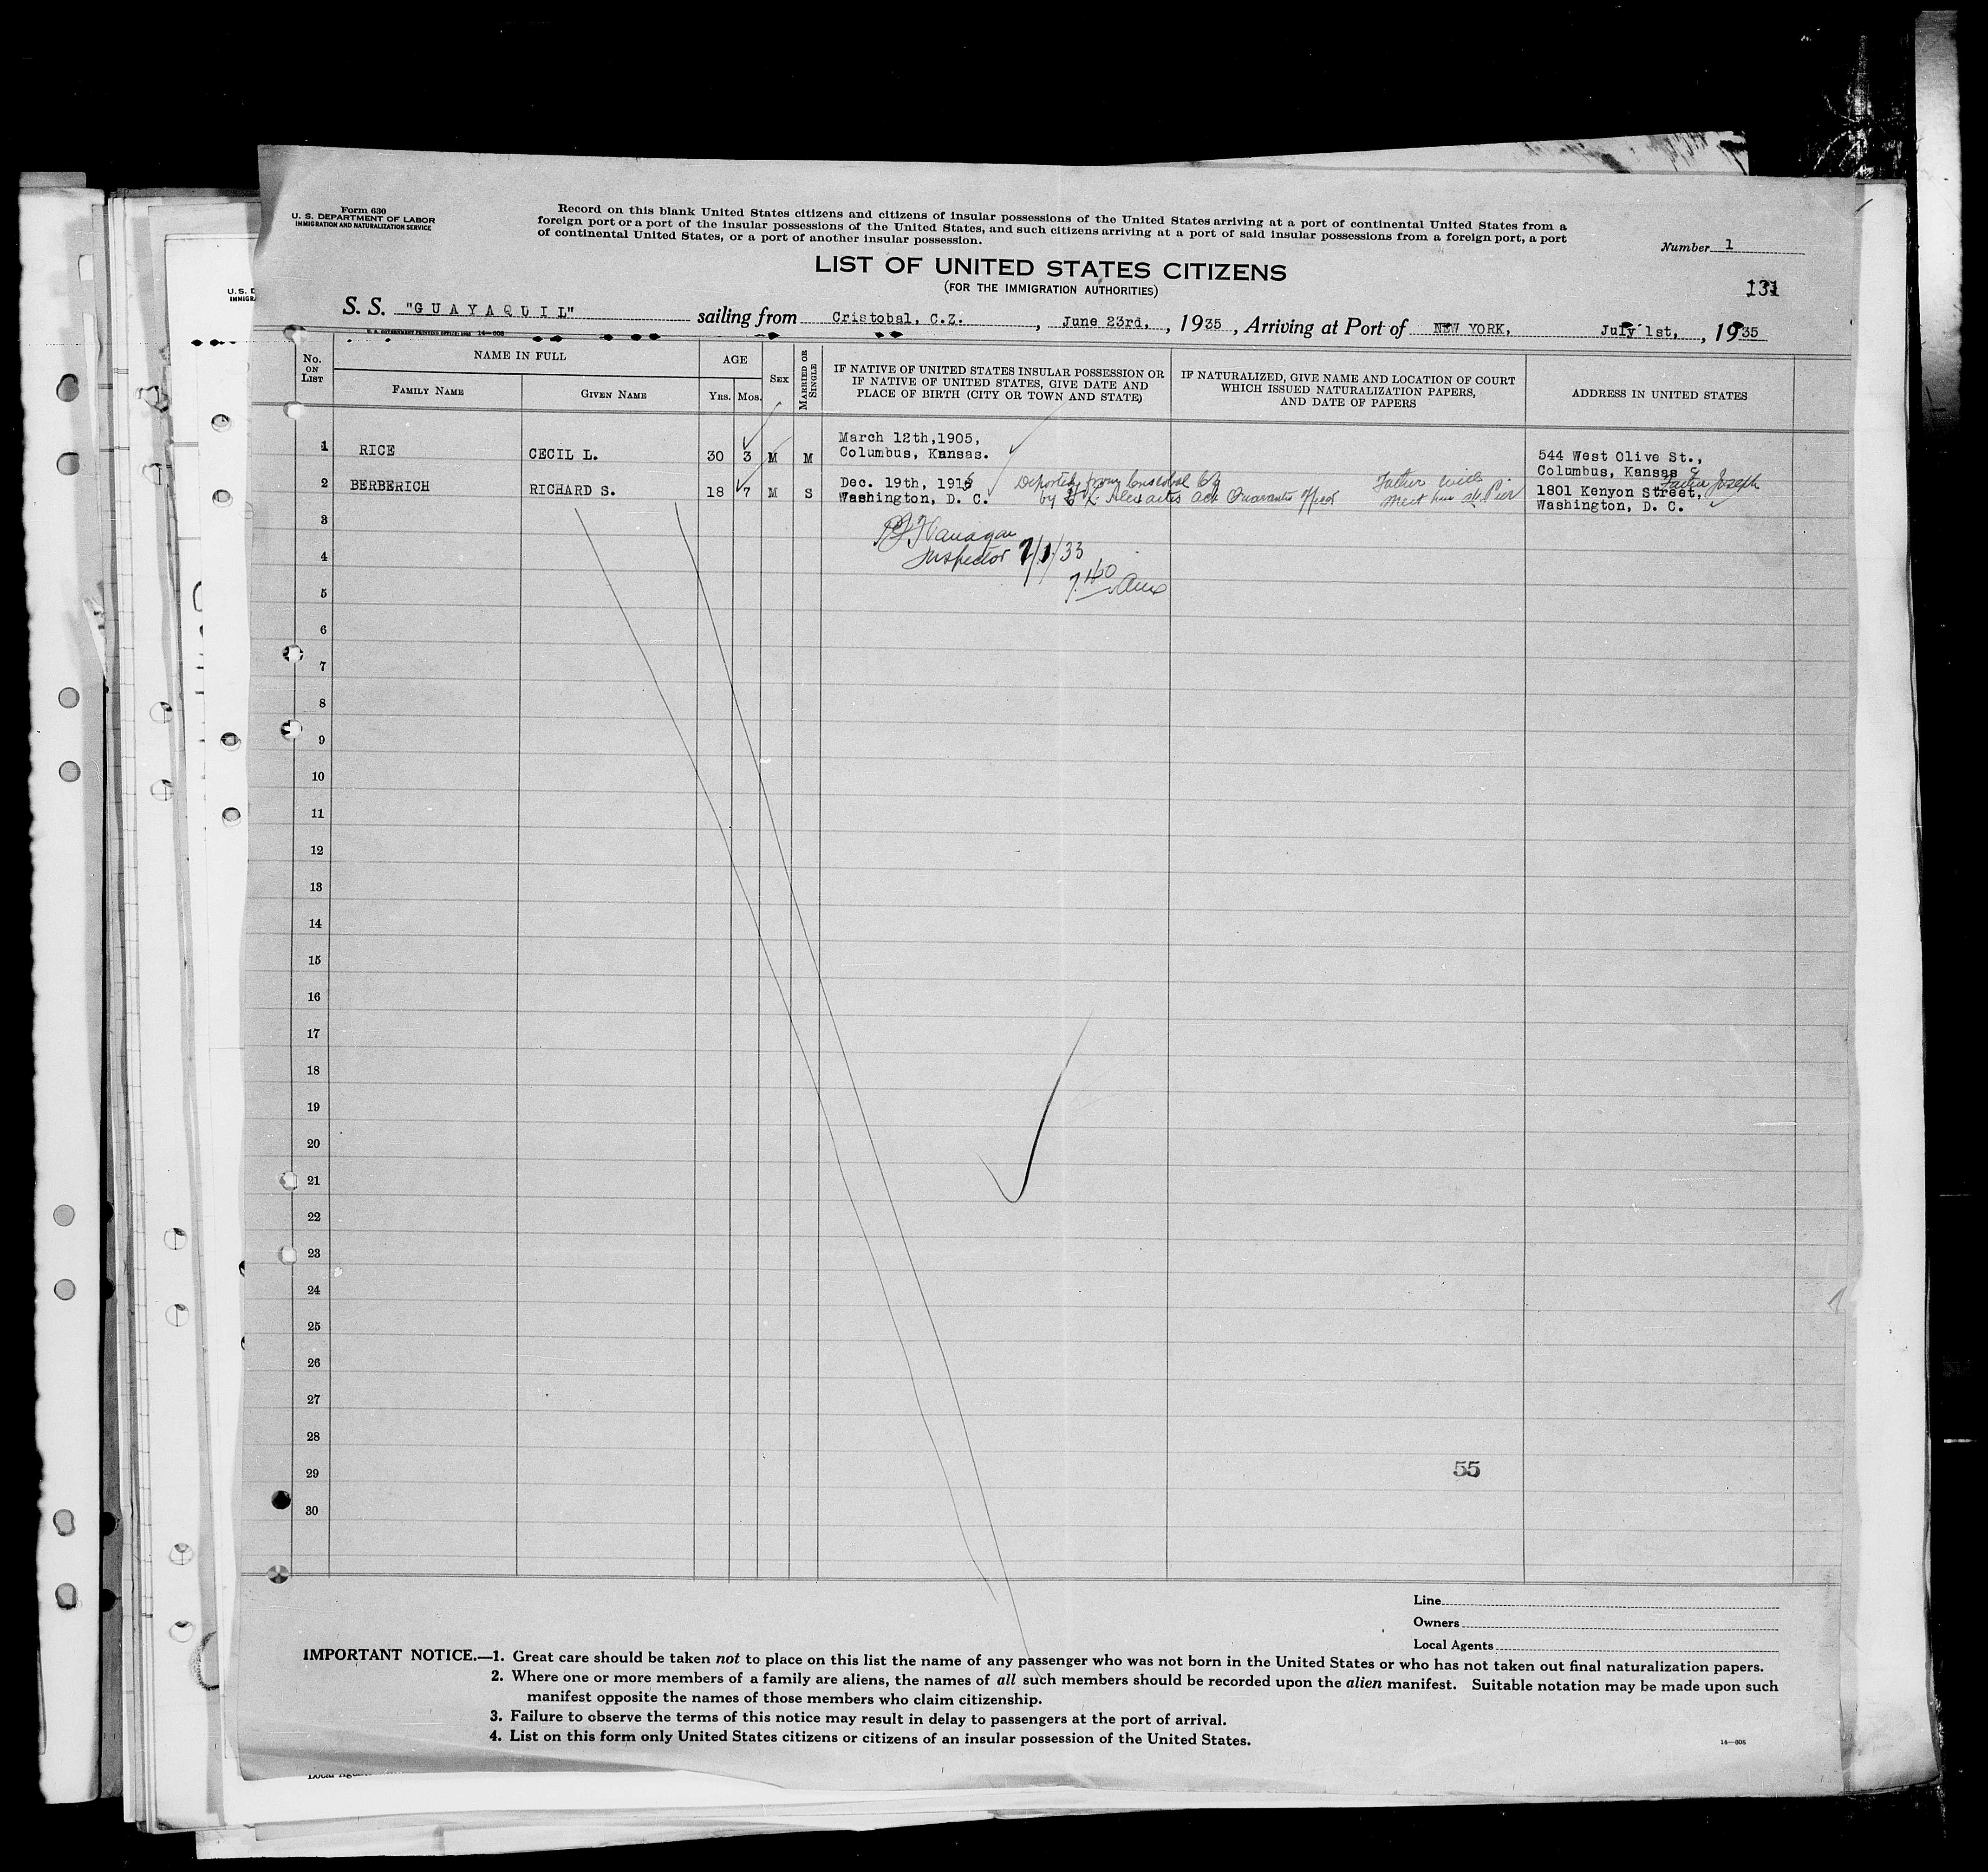 Form 630
U. S. DEPARTMENT OF LABOR
IMMIGRATION AND NATURALIZATION SERVICE
Record on this blank United States citizens and citizens of insular possessions of the United States arriving at a port of continental United States from a
foreign port or a port of the insular possessions of the United States, and such citizens arriving at a port of said insular possessions from a foreign port, a port
of continental United States, or a port of another insular possession.
Number 1
LIST OF UNITED STATES CITIZENS
(FOR THE IMMIGRATION AUTHORITIES)
131
S. S. "GUAYAQUIL" sailing from Cristobal, C.Z. , June 23rd, , 1935 , Arriving at Port of NEW YORK, July 1st, , 1935
U. S. GOVERNMENT PRINTING OFFICE 14—606
No. ON LIST
NAME IN FULL
FAMILY NAME
GIVEN NAME
AGE
YRS. MOS.
SEX
MARRIED OR SINGLE
IF NATIVE OF UNITED STATES INSULAR POSSESSION OR
IF NATIVE OF UNITED STATES, GIVE DATE AND
PLACE OF BIRTH (CITY OR TOWN AND STATE)
IF NATURALIZED, GIVE NAME AND LOCATION OF COURT
WHICH ISSUED NATURALIZATION PAPERS,
AND DATE OF PAPERS
ADDRESS IN UNITED STATES
1 RICE CECIL L. 30 3 M M
March 12th,1905,
Columbus, Kansas.
544 West Olive St.,
Columbus, Kansas
2 BERBERICH RICHARD S. 18 7 M S
Dec. 19th, 1916
Washington, D. C.
Deported from Cristobal CZ
by Act Quarantine Officer
Father will
meet him at Pier
Father Joseph
1801 Kenyon Street,
Washington, D. C.
3
Flanagan
4
Inspector 7/1/33
5
7.40 am
6
7
8
9
10
11
12
13
14
15
16
17
18
19
20
21
22
23
24
25
26
27
28
29
55
30
Line
Owners
Local Agents
IMPORTANT NOTICE.—1. Great care should be taken not to place on this list the name of any passenger who was not born in the United States or who has not taken out final naturalization papers.
2. Where one or more members of a family are aliens, the names of all such members should be recorded upon the alien manifest. Suitable notation may be made upon such
manifest opposite the names of those members who claim citizenship.
3. Failure to observe the terms of this notice may result in delay to passengers at the port of arrival.
4. List on this form only United States citizens or citizens of an insular possession of the United States.
14—606